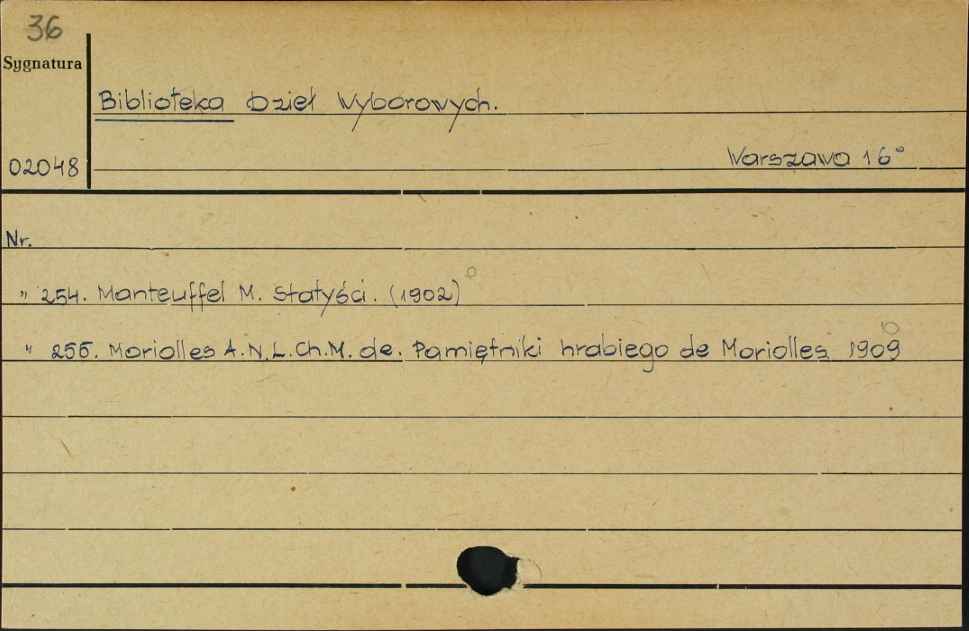 36
Sygnatura
Biblioteka Dzieł Wyborowych.
02048
Warszawa 16°
Nr.
" 254. Manteuffel M. Statyści. (1902)
" 255. Moriolles A.N.L.Ch.M. de. Pamiętniki hrabiego de Moriolles 1909